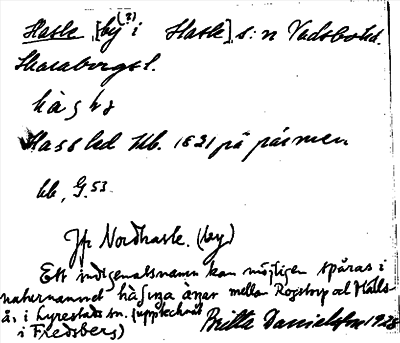 Hasle [by (?) i Hasle] s:n Vadsbo hd.
Skaraborgs l.
Hassled Hb. 1821 på pärmen
bb, G. 53
Jfr Nordhasle. (by)
Ett indigenatsnamn kan möjligen spåras i
naturnamnet ängar mellan Rogstorp och Halls-
å, i Lyrestads sn. (upptecknat
i Fredsberg) Britta Danielsson 1928